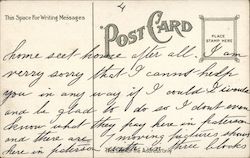 4
This Space For Writing Messages
POST CARD
PLACE
STAMP HERE
home seet home after all. I am
verry sorry that I cannot help
you in any way if I could I would
and be glad to do so I dont even
know what they pay here in paterson
and there are 9 moving pictures shows
here in paterson three blocks